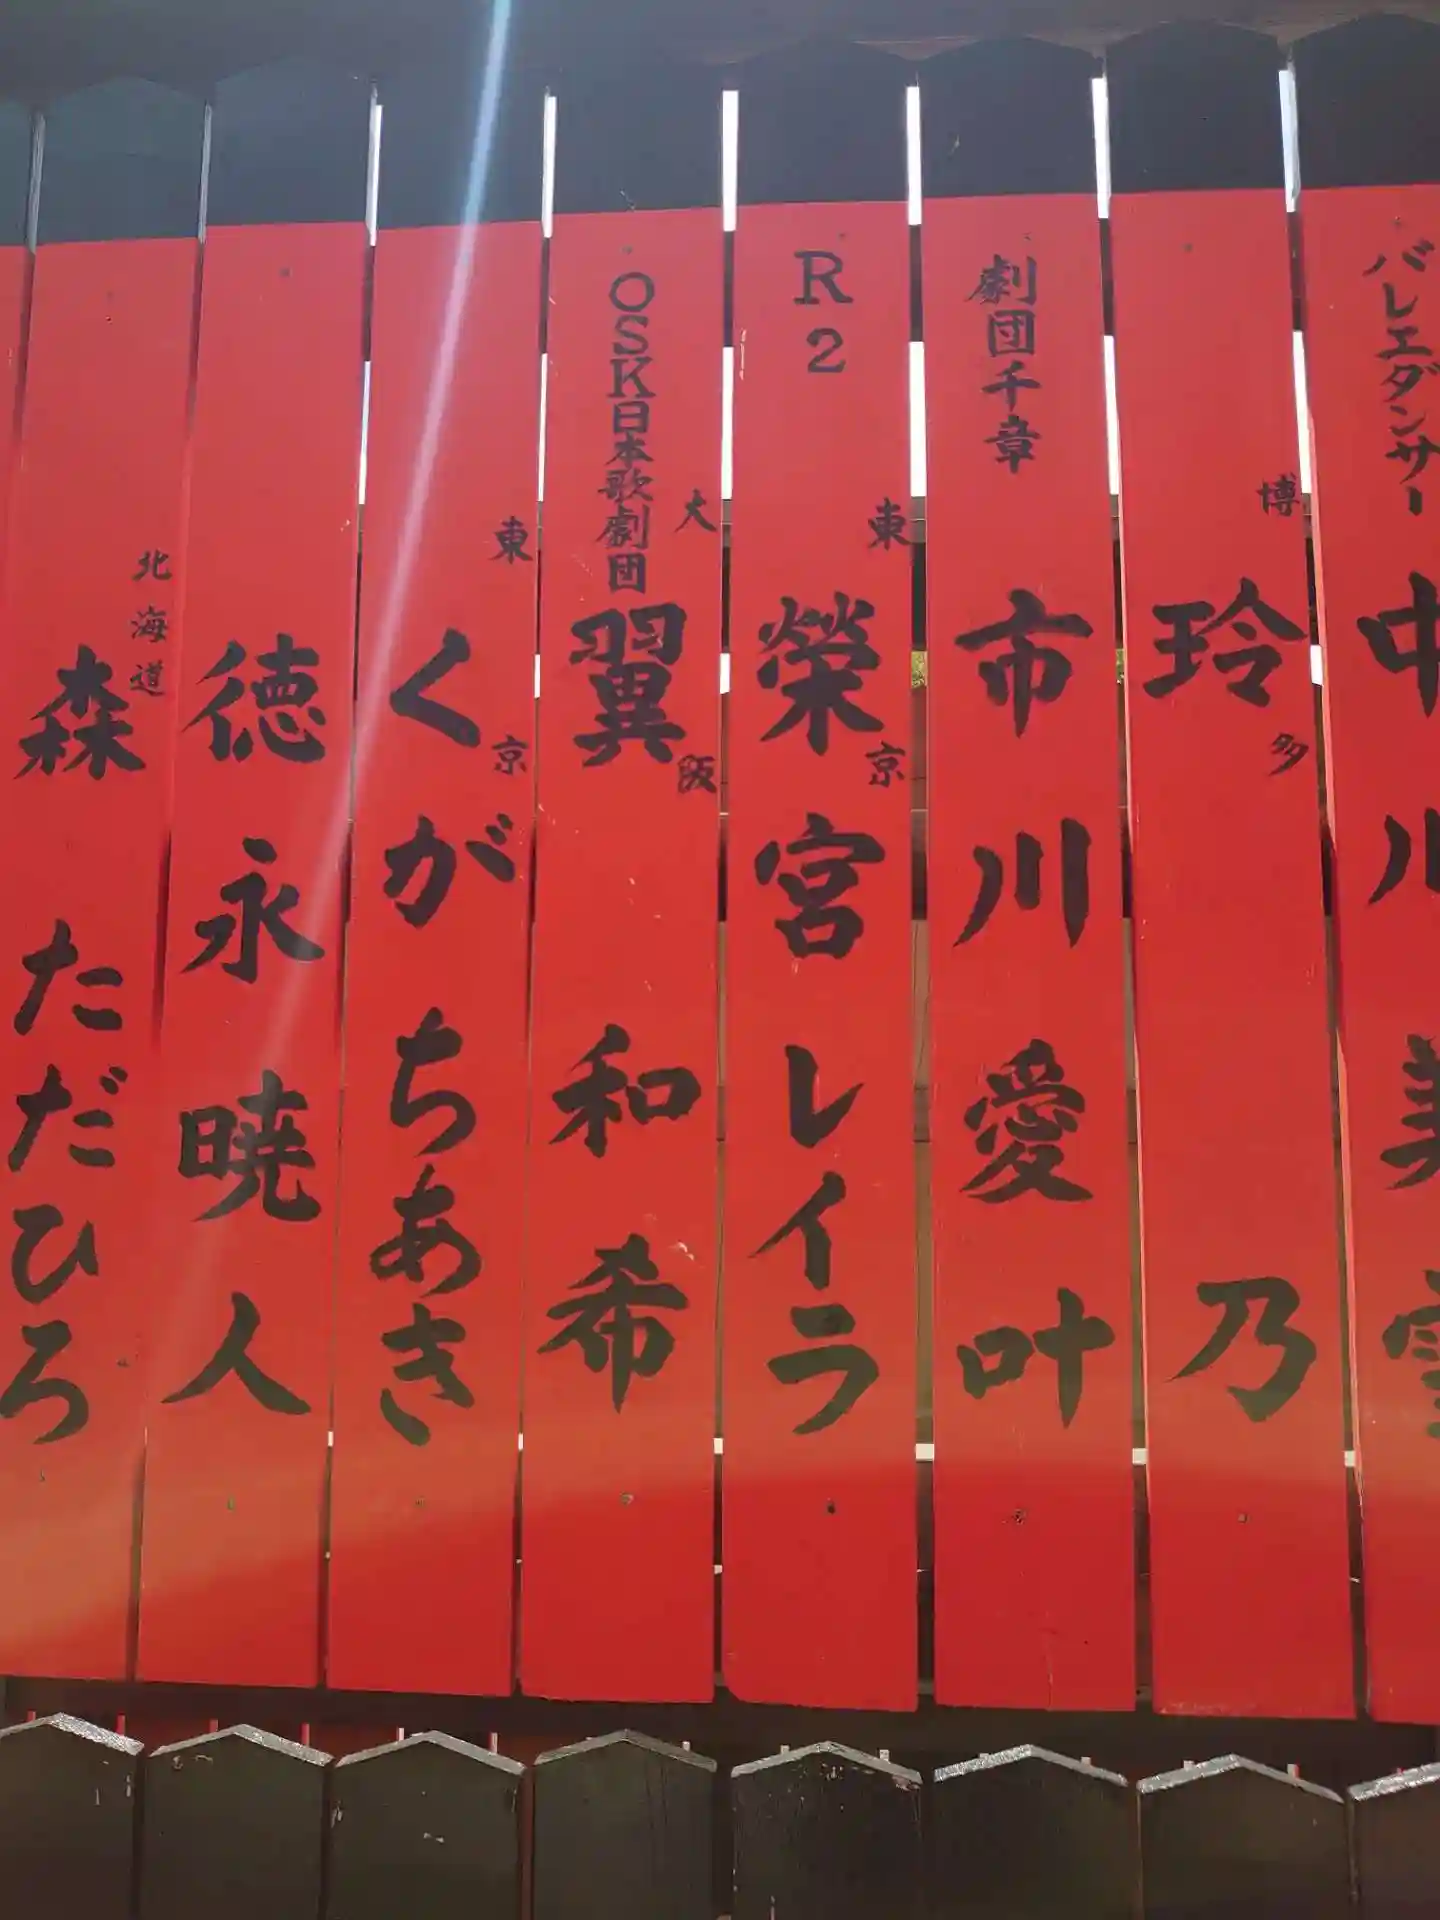 バレエダンサー 中川美
博多 玲乃
劇団千章 市川愛叶
R2 東京 榮宮レイラ
OSK日本歌劇団 大阪 翼和希
東京 くがちあき
徳永暁人
北海道 森ただひろ